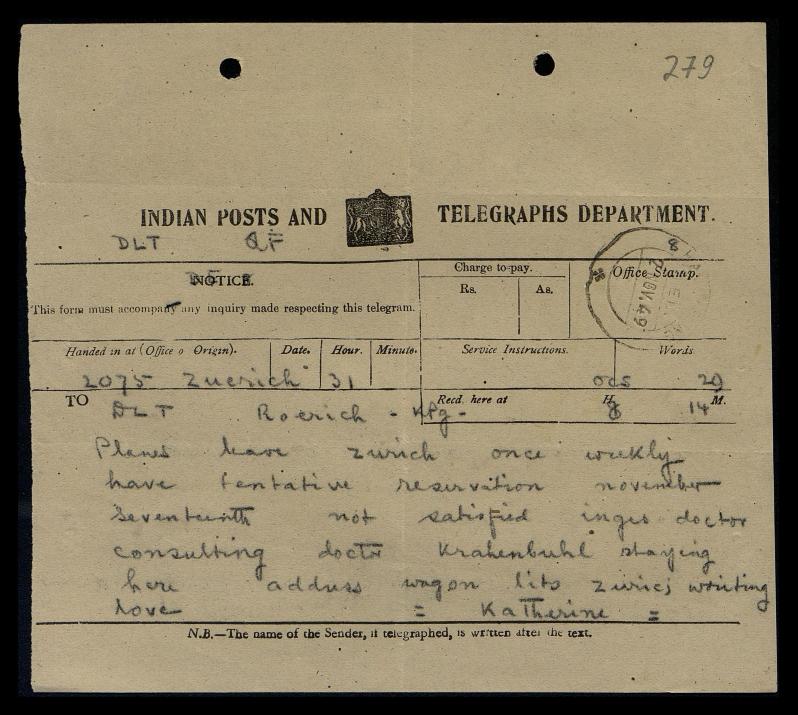 279
INDIAN POSTS AND TELEGRAPHS DEPARTMENT.
DLT QF
NOTICE.
This form must accompany any inquiry made respecting this telegram.
Charge to pay.
Rs. As.
Office Stamp.
8
2 NOV. 49
Handed in at (Office o Origin). Date. Hour. Minute. Service Instructions. Words
2075 Zuerich 31 ocs 29
TO
Recd. here at H. M.
8 14
DLT Roerich - Kpg -
Planes leave zurich once weekly
have tentative reservation november
seventeenth not satisfied inges doctor
consulting doctor Krahenbuhl staying
here address wagon lits zurich writing
love = Katherine =
N.B.—The name of the Sender, if telegraphed, is written after the text.